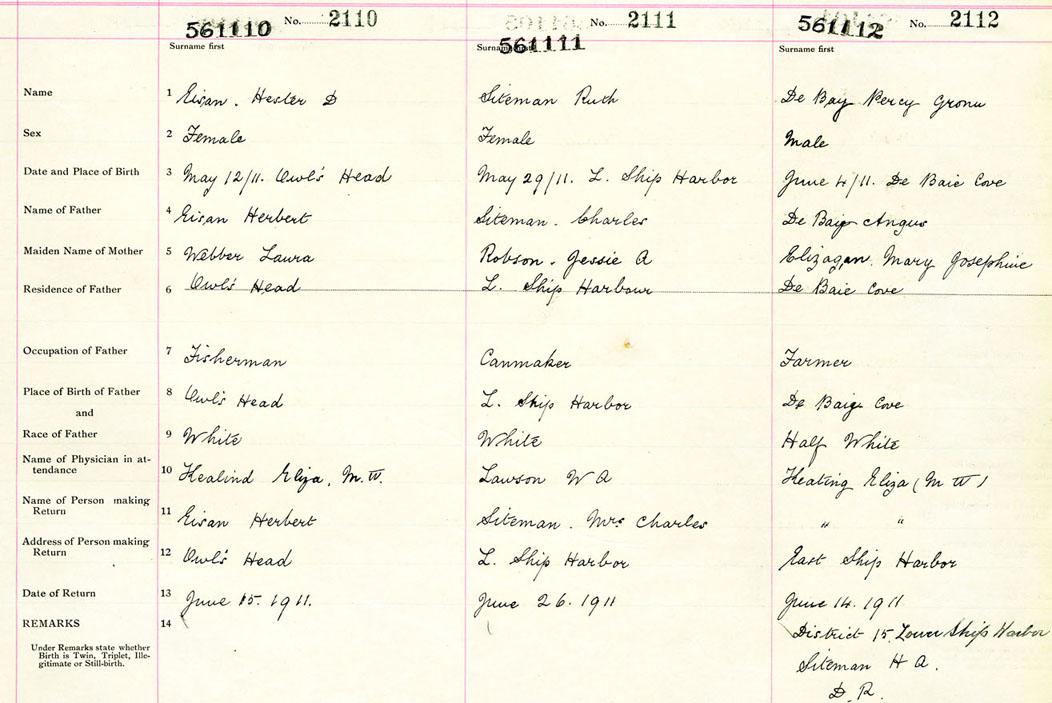 561110 No. 2110 561111 No. 2111 561112 No. 2112
Surname first Surname first Surname first
Name 1 Eisan. Hester D Siteman Ruth De Bay Percy Gronu
Sex 2 Female Female Male
Date and Place of Birth 3 May 12/11. Owl's Head May 29/11. L. Ship Harbor June 4/11. De Baie Cove
Name of Father 4 Eisan Herbert Siteman. Charles De Baie Angus
Maiden Name of Mother 5 Webber Laura Robson. Jessie A Mary Josephine
Residence of Father 6 Owl's Head L. Ship Harbour De Baie Cove
Occupation of Father 7 Fisherman Canmaker Farmer
Place of Birth of Father 8 Owl's Head L. Ship Harbor De Baie Cove
and
Race of Father 9 White White Half White
Name of Physician in at-
tendance 10 Eliza, M.W. Lawson W A Keating Eliza (M W)
Name of Person making
Return 11 Eisan Herbert Siteman. Mrs Charles " "
Address of Person making
Return 12 Owl's Head L. Ship Harbor East Ship Harbor
Date of Return 13 June 15. 1911. June 26. 1911 June 14. 1911
REMARKS 14 District 15, Lower Ship Harbor
Under Remarks state whether
Birth is Twin, Triplet, Ille-
gitimate or Still-birth.
Siteman H A.
D. R.